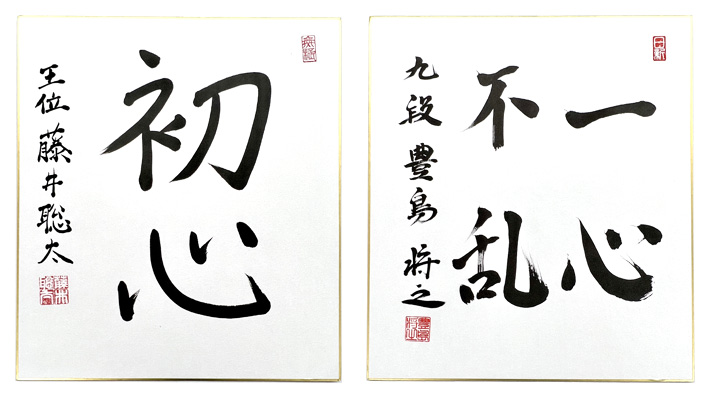 初心
王位 藤井聡太
一心
不乱
九段 豊島 将之